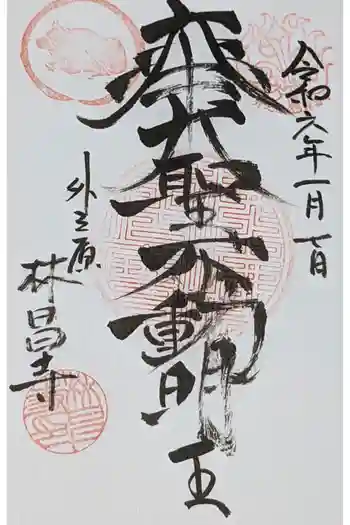 令和六年一月七日
奉 大聖不動明王
外之原
林昌寺